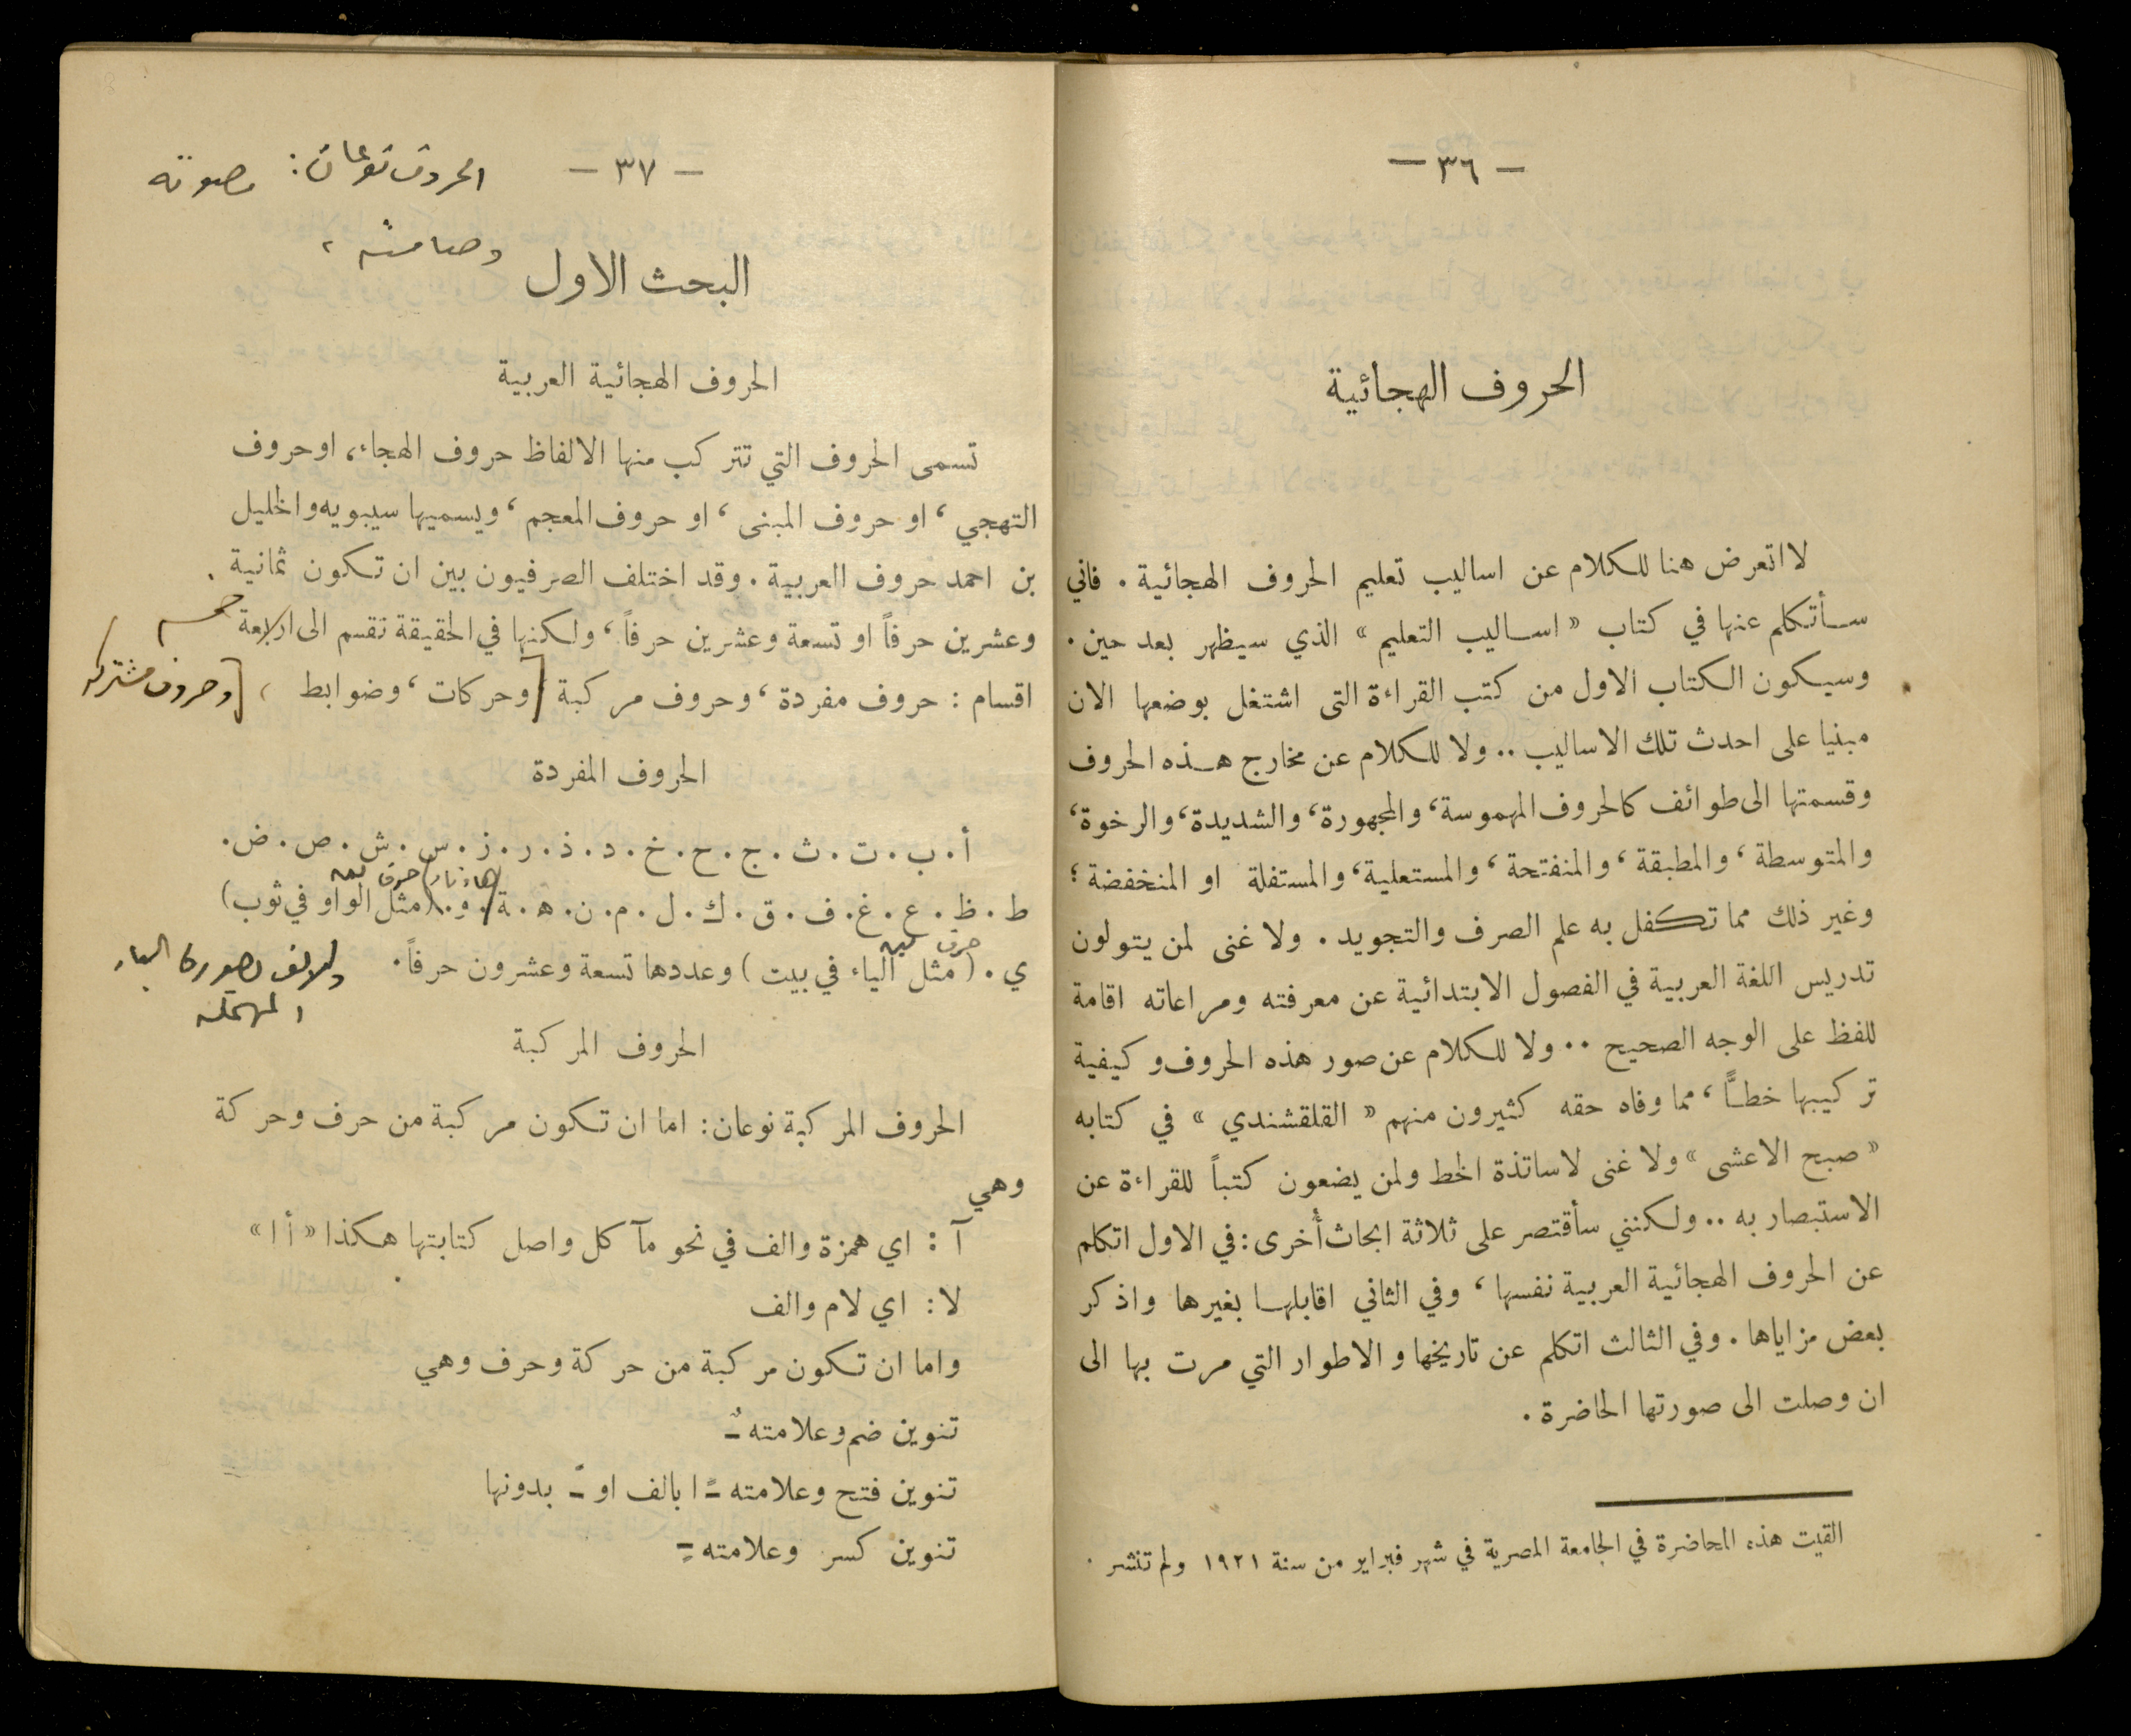 — ٣٦ —
الحروف الهجائية
لا اتعرض هنا للكلام عن اساليب تعليم الحروف الهجائية . فاني
سأتكلم عنها في كتاب « اساليب التعليم » الذي سيظهر بعد حين .
وسيكون الكتاب الاول من كتب القراءة التى اشتغل بوضعها الان
مبنيا على احدث تلك الاساليب .. ولا للكلام عن مخارج هذه الحروف
وقسمتها الى طوائف كالحروف المهموسة، والمجهورة، والشديدة، والرخوة،
والمتوسطة ، والمطبقة ، والمنفتحة ، والمستعلية، والمستفلة او المنخفضة ؛
وغير ذلك مما تكفل به علم الصرف والتجويد . ولا غنى لمن يتولون
تدريس اللغة العربية في الفصول الابتدائية عن معرفته ومراعاته اقامة
للفظ على الوجه الصحيح .. ولا للكلام عن صور هذه الحروف وكيفية
تركيبها خطاً ، مما وفاه حقه كثيرون منهم « القلقشندي » في كتابه
« صبح الاعشى » ولا غنى لاساتذة الخط ولمن يضعون كتباً للقراءة عن
الاستبصار به .. ولكنني سأقتصر على ثلاثة ابحاث أخرى : في الاول اتكلم
عن الحروف الهجائية العربية نفسها ، وفي الثاني اقابلها بغيرها واذكر
بعض مزاياها . وفي الثالث اتكلم عن تاريخها والاطوار التي مرت بها الى
ان وصلت الى صورتها الحاضرة .
القيت هذه المحاضرة في الجامعة المصرية في شهر فبراير من سنة ١٩٢١ ولم تنشر .
— ٣٧ —
الحروف نوعان : مصوتة
وصامتة ،
البحث الاول
الحروف الهجائية العربية
تسمى الحروف التي تتركب منها الالفاظ حروف الهجاء، او حروف
التهجي ، او حروف المبنى ، او حروف المعجم ، ويسميها سيبويه والخليل
بن احمد حروف العربية . وقد اختلف الصرفيون بين ان تكون ثمانية
وعشرين حرفاً او تسعة وعشرين حرفاً ، ولكنها في الحقيقة تقسم الى اربعة خمسة
اقسام : حروف مفردة ، وحروف مركبة [ وحركات ، وضوابط ، [ وحروف مشتركة
الحروف المفردة
أ . ب . ت . ث . ج . ح . خ . د . ذ . ر . ز . س . ش . ص . ض .
حرف لين
ط . ظ . ع . غ . ف . ق . ك . ل . م . ن . ه . ة . و . ( مثل الواو في ثوب )
حرف لين
ي . ( مثل الياء في بيت ) وعددها تسعة وعشرون حرفاً . والالف بصورة الياء
المهملة
الحروف المركبة
الحروف المركبة نوعان : اما ان تكون مركبة من حرف وحركة
وهي
آ : اي همزة والف في نحو مآكل واصل كتابتها هكذا « أ ا »
لا : اي لام والف
واما ان تكون مركبة من حركة وحرف وهي
تنوين ضم وعلامته ـٌ
تنوين فتح وعلامته ـً ا بالف او ـً بدونها
تنوين كسر وعلامته ـٍ